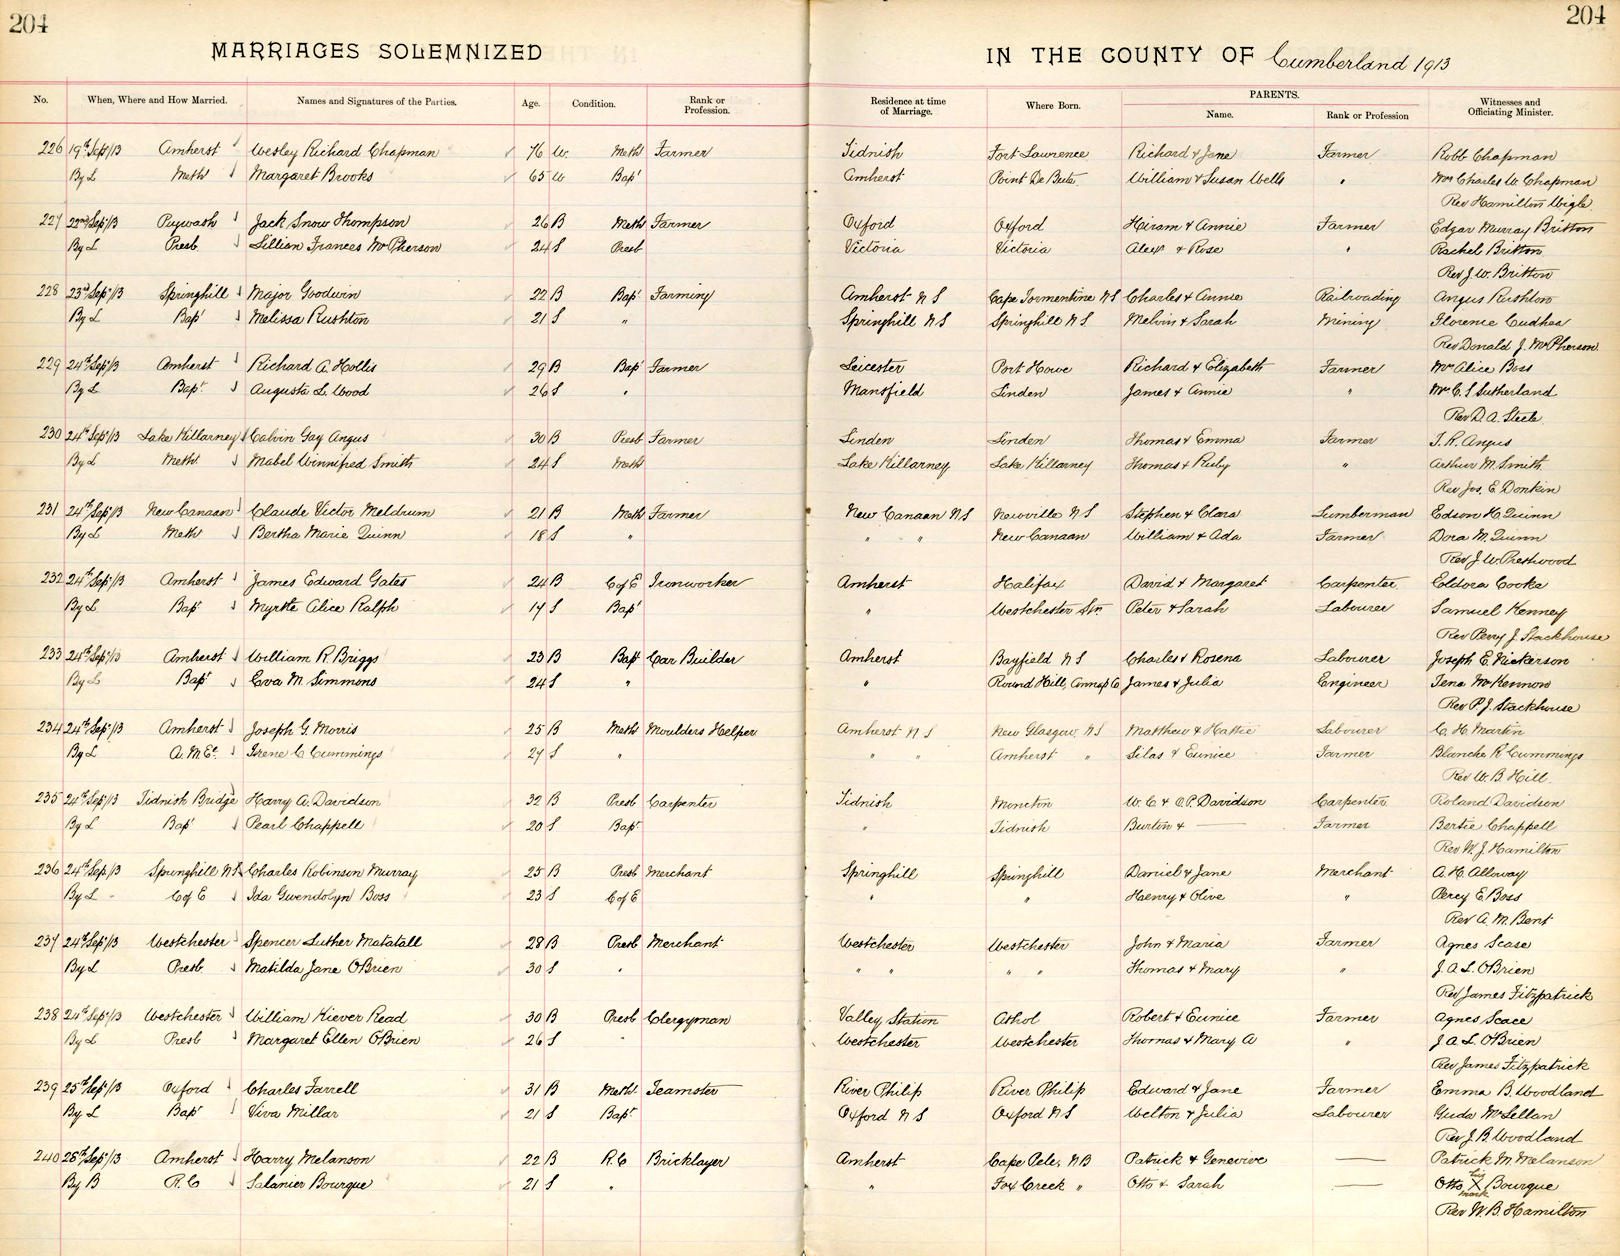 204
204
MARRIAGES SOLEMNIZED
IN THE COUNTY OF Cumberland 1913
No. When, Where and How Married. Names and Signatures of the Parties. Age. Condition. Rank or Profession. Residence at time of Marriage. Where Born. PARENTS. Name. Rank or Profession Witnesses and Officiating Minister.
226 19th Sept/13 Amherst Wesley Richard Chapman 76 W. Meth Farmer Tidnish Fort Lawrence Richard & Jane Farmer Robb Chapman
By L Meth Margaret Brooks 65 W Bapt Amherst Point De Bute William & Susan Wells " Mrs Charles W. Chapman
Rev Hamilton Wigle
227 22nd Sept/13 Pugwash Jack Snow Thompson 26 B Meth Farmer Oxford Oxford Hiram & Annie Farmer Edgar Murray Britton
By L Presb. Lillian Frances McPherson 24 S Presb Victoria Victoria Alex & Rose " Rachel Britton
Rev J. W. Britton
228 23rd Sept/13 Springhill Major Goodwin 22 B Bapt Farming Amherst N S Cape Tormentine N S Charles & Annie Railroading Angus Rushton
By L Bapt Melissa Rushton 21 S " Springhill N S Springhill N S Melvin & Sarah Mining Florence Cudhea
Rev Donald J. McPherson
229 24th Sept/13 Amherst Richard A Hollis 29 B Bapt Farmer Leicester Port Howe Richard & Elizabeth Farmer Mrs Alice Boss
By L Bapt. Augusta L. Wood 26 S " Mansfield Linden James & Annie " Mrs C. S Sutherland
Rev D. A. Steele
230 24th Sept/13 Lake Killarney Calvin Gay Angus 30 B Presb Farmer Linden Linden Thomas & Emma Farmer T. R. Angus
By L Meth. Mabel Winnifred Smith 24 S Meth Lake Killarney Lake Killarney Thomas & Ruby " Arthur M. Smith
Rev Jos. E. Donkin
231 24th Sept/13 New Canaan Claude Victor Meldrum 21 B Meth Farmer New Canaan N S Newville N S Stephen & Clara Lumberman Edson H Quinn
By L Meth Bertha Marie Quinn 18 S " " " New Canaan William & Ada Farmer Dora M. Quinn
Rev J. W. Prestwood
232 24th Sept/13 Amherst James Edward Gates 24 B C of E Ironworker Amherst Halifax David & Margaret Carpenter Eoldora Cooke
By L Bapt Myrtle Alice Ralph 17 S Bapt " Westchester Stn. Peter & Sarah Labourer Samuel Kenney
Rev Perry J. Stackhouse
233 24th Sept/13 Amherst William R. Briggs 23 B Bapt Car Builder Amherst Bayfield N S Charles & Rosena Labourer Joseph E. Nickerson
By L Bapt Eva M. Simmons 24 S " " Round Hill, Annap Co James & Julia Engineer Tena McKennon
Rev P. J. Stackhouse
234 24th Sept/13 Amherst Joseph G. Morris 25 B Meth Moulders Helper Amherst N S New Glasgow N S Matthew & Hattie Labourer C. H. Martin
By L A. M. E. Irene C Cummings 27 S " " " Amherst " Silas & Eunice Farmer Blanche R Cummings
Rev W. B Hill.
235 24th Sept/13 Tidnish Bridge Harry A. Davidson 32 B Presb Carpenter Tidnish Moncton W. C & O. P. Davidson Carpenter Roland Davidson
By L Bapt Pearl Chappell 20 S Bapt. " Tidnish Burton & — Farmer Bertie Chappell
Rev W. J. Hamilton
236 24th Sept/13 Springhill N S Charles Robinson Murray 25 B Presb Merchant Springhill Springhill Daniel & Jane Merchant A. H. Alloway
By L - C of E Ida Gwendolyn Boss 23 S C of E " " Haenry & Olive " Percy E Boss
Rev A. M. Bent
237 24th Sept/13 Westchester Spencer Luther Matatall 28 B Presb Merchant Westchester Westchester John & Maria Farmer Agnes Scase
By L Presb Matilda Jane OBrien 30 S " " " " " Thomas & Mary " J. A. L. OBrien
Rev James Fitzpatrick
238 24th Sept/13 Westchester William Kiever Read 30 B Presb Clergyman Valley Station Athol Robert & Eunice Farmer Agnes Scace
By L Presb Margaret Ellen O'Brien 26 S " Westchester Westchester Thomas & Mary A " J A L. OBrien
Rev James Fitzpatrick
239 25th Sept/13 Oxford Charles Farrell 31 B Meth. Teamster River Philip River Philip Edward & Jane Farmer Emma B. Woodland
By L Bapt Viva Millar 21 S Bapt. Oxford N S Oxford N S Welton & Julia Labourer Guda McLellan
Rev J. B. Woodland
240 26th Sept/13 Amherst Harry Melanson 22 B R. C Bricklayer Amherst Cape Pele, NB Patrick & Genevive — Patrick M. Melanson
By B R. C Salanier Bourque 21 S " " Fox Creek " Otto & Sarah — Otto his X mark Bourque
Rev W. B. Hamilton